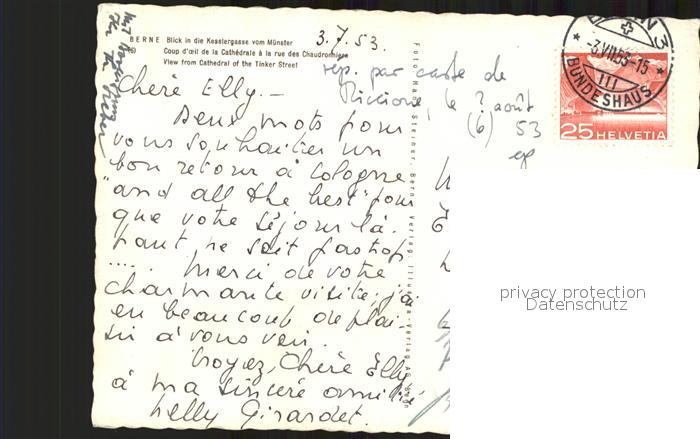 BERNE Blick in die Kesslergasse vom Münster
Coup d'œil de la Cathédrale à la rue des Chaudronniers
View from Cathedral of the Tinker Street
3.7.53.
rép. par carte de
Riccione, le ? août
(6) 53
Chère Elly. —
Deux mots pour
vous souhaiter un
bon retour à Cologne
"and all the best" pour
que votre séjour là.
haut, ne soit pas trop
.... Merci de votre
charmante visite, j'ai
eu beaucoup de plai-
sir à vous voir.
Croyez, Chère Elly
à ma sincère amitié
Nelly Girardet.
Foto Hans Steiner, Bern
Verlag AG
3.VII.53-15
III
BUNDESHAUS
25 HELVETIA
privacy protection
Datenschutz